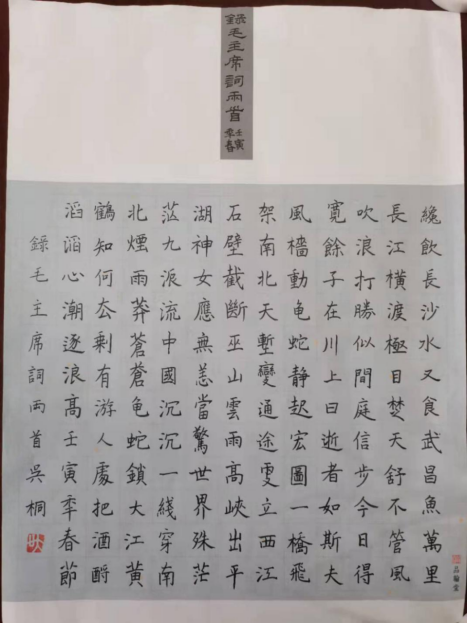 錄毛主席詞兩首
壬寅
秊春
纔飲長沙水又食武昌魚萬里
長江橫渡極目楚天舒不管風
吹浪打勝似間庭信步今日得
寬餘子在川上曰逝者如斯夫
風檣動龜蛇靜起宏圖一橋飛
架南北天塹變通途更立西江
石壁截斷巫山雲雨高峽出平
湖神女應無恙當驚世界殊茫
茫九派流中國沉沉一綫穿南
北煙雨莽蒼蒼龜蛇鎖大江黃
鶴知何去剩有游人處把酒酹
滔滔心潮逐浪高壬寅秊春節
錄毛主席詞兩首吳桐
品翰堂